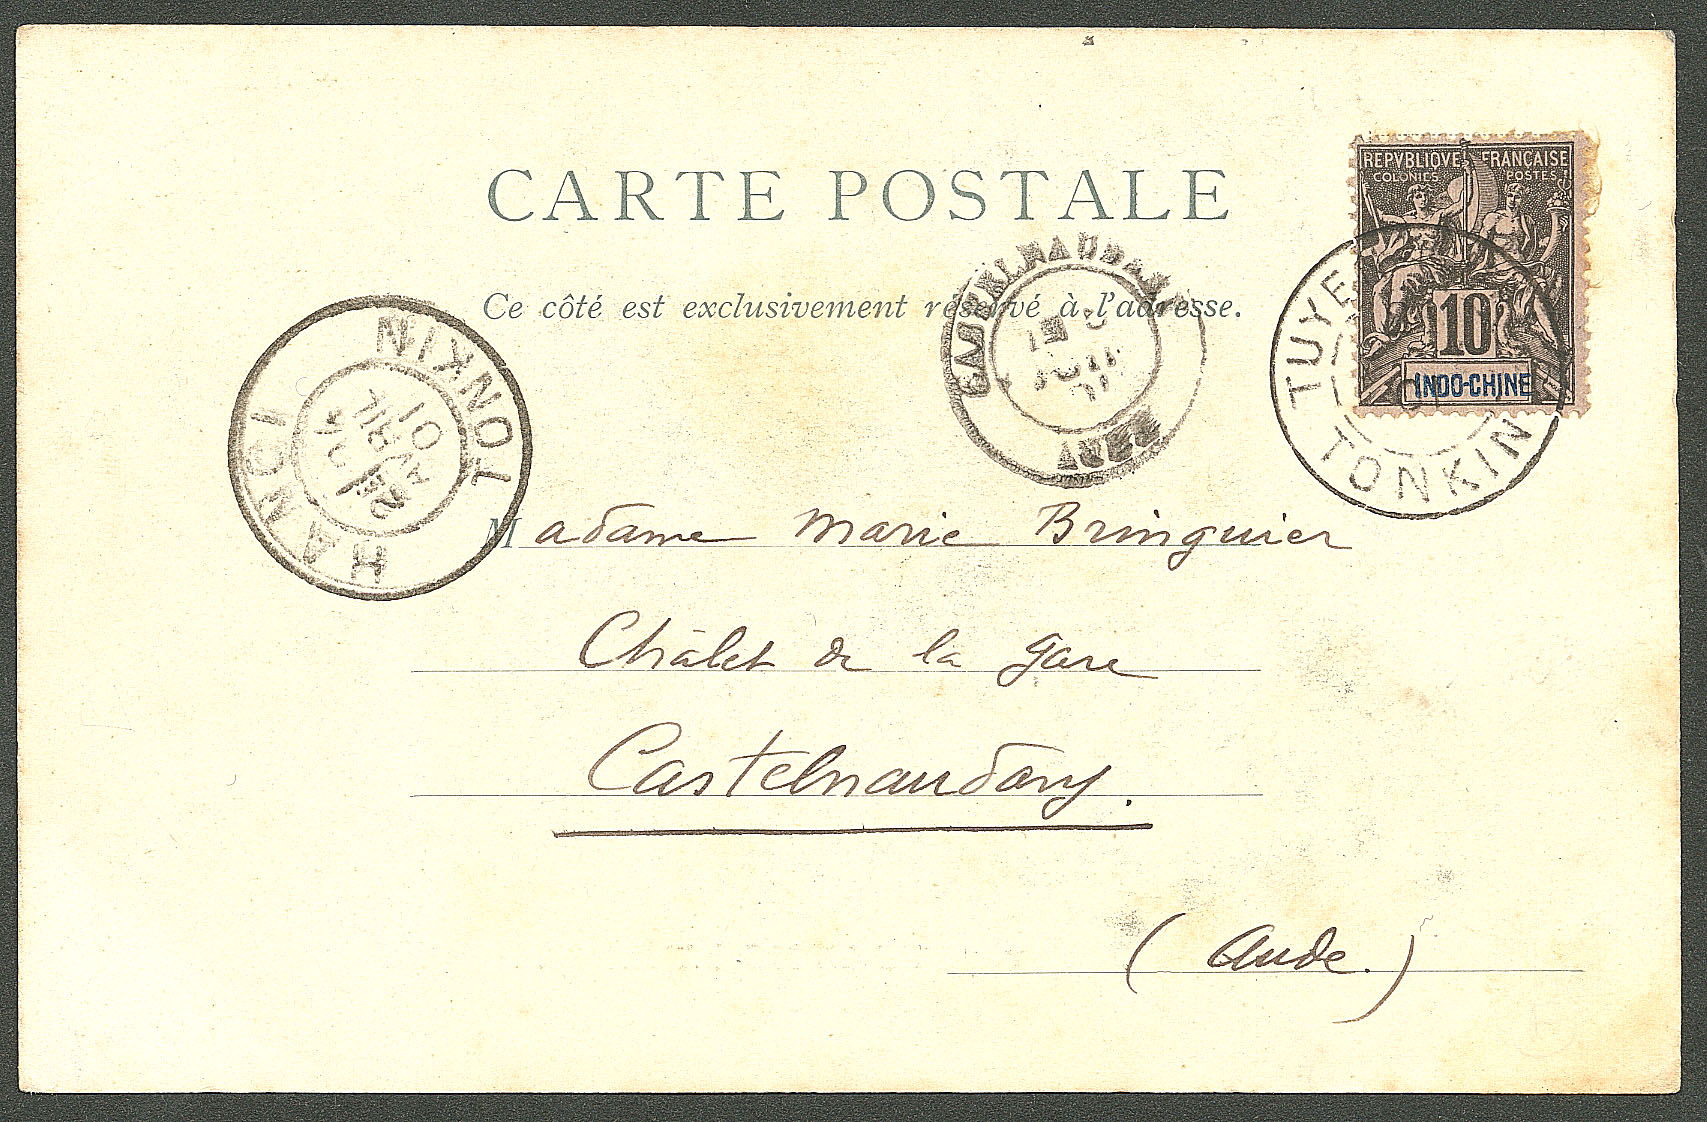 CARTE POSTALE
Ce côté est exclusivement réservé à l'adresse.
REPVBLIQVE FRANÇAISE
COLONIES POSTES
10
INDO-CHINE
TUYE
TONKIN
CASTELNAUDARY
AUDE
HANOI
TONKIN
AVRIL
01
Madame Marie Bringuier
Châlet de la gare
Castelnaudary.
(Aude.)